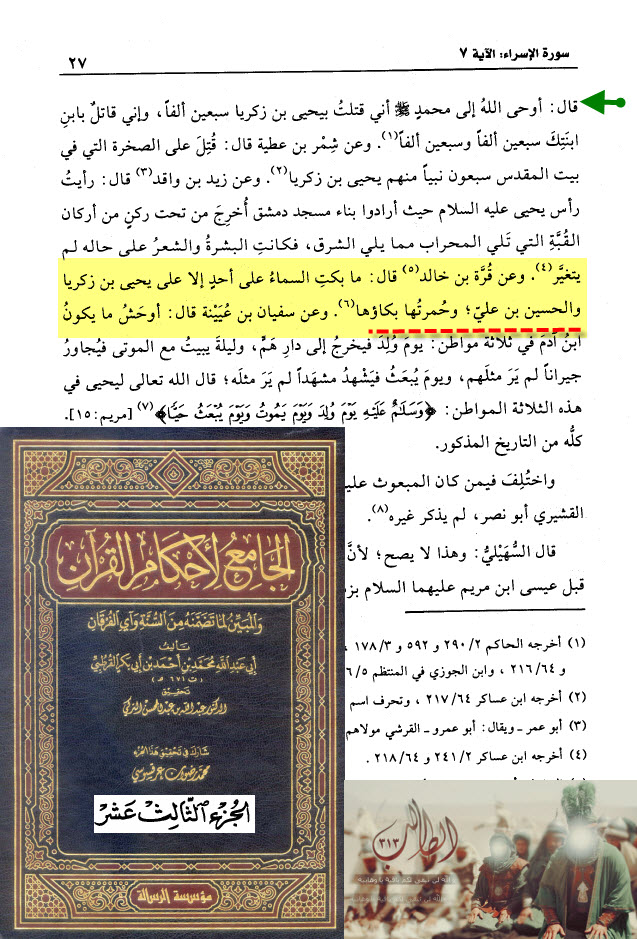 سورة الإسراء: الآية ٧
٢٧
قال: أوحى اللهُ إلى محمدٍ ﷺ أني قتلتُ بيحيى بن زكريا سبعين ألفاً، وإني قاتلٌ بابنِ
ابنَتِكَ سبعين ألفاً وسبعين ألفاً(١). وعن شِمْر بن عطية قال: قُتِلَ على الصخرة التي في
بيت المقدس سبعون نبياً منهم يحيى بن زكريا(٢). وعن زيد بن واقد(٣) قال: رأيتُ
رأس يحيى عليه السلام حيث أرادوا بناء مسجد دمشق أُخرِجَ من تحت ركنٍ من أركان
القُبَّةِ التي تَلي المحراب مما يلي الشرق، فكانتِ البشرةُ والشعرُ على حاله لم
يتغيَّر(٤). وعن قُرَّة بن خالد(٥) قال: ما بكتِ السماءُ على أحدٍ إلا على يحيى بن زكريا
والحسين بن عليّ؛ وحُمرتُها بكاؤها(٦). وعن سفيان بن عُيَيْنة قال: أوحَشُ ما يكونُ
ابنُ آدمَ في ثلاثة مواطن: يومَ وُلِدَ فيخرجُ إلى دارِ هَمٍّ، وليلةَ يبيتُ مع الموتى فيُجاورُ
جيراناً لم يَرَ مثلَهم، ويومَ يُبعَثُ فيَشْهدُ مشهَداً لم يَرَ مثلَه؛ قال الله تعالى ليحيى في
هذه الثلاثة المواطن: ﴿وَسَلَامٌ عَلَيْهِ يَوْمَ وُلِدَ وَيَوْمَ يَمُوتُ وَيَوْمَ يُبْعَثُ حَيًّا﴾(٧) [مريم:١٥].
كلُّه من التاريخ المذكور.
واختُلِفَ فيمن كان المبعوث علي
القشيري أبو نصر، لم يذكر غيره(٨).
قال السُّهَيْليُّ: وهذا لا يصح؛ لأنَّ
قبل عيسى ابن مريم عليهما السلام بز
(١) أخرجه الحاكم ٢/٢٩٠ و ٥٩٢ و ٣/١٧٨ ،
و ٦٤/٢١٦ ، وابن الجوزي في المنتظم ٥/٦
(٢) أخرجه ابن عساكر ٦٤/٢١٧ ، وتحرف اسم
(٣) أبو عمر ـ ويقال: أبو عمرو ـ القرشي مولاهم
(٤) أخرجه ابن عساكر ٢/٢٤١ و ٦٤/٢١٨ .
الجامع لأحكام القرآن
والمبين لما تضمنه من السنة وآي الفرقان
تأليف
أبي عبد الله محمد بن أحمد بن أبي بكر القرطبي
(ت ٦٧١ هـ)
تحقيق
الدكتور عبد الله بن عبد المحسن التركي
شارك في تحقيق هذا الجزء
محمد رضوان عرقسوسي
الجزء الثالث عشر
مؤسسة الرسالة
الطالب
٣١٣